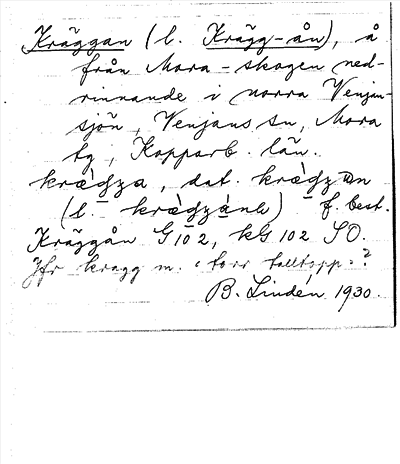 Kräggan (l. Krägg-ån), å
från Mora-skogen ned-
rinnande i norra Venjan-
sjön, Venjans sn, Mora
tg, Kopparb. län.
kræ̀gza, dat. kræ̀gzən
(l. kræ̀gzánɩ) f. best.
Kräggån G 102, kG 102 SO.
Jfr kragg m. 'torr talltopp'?
B. Lindén 1930.